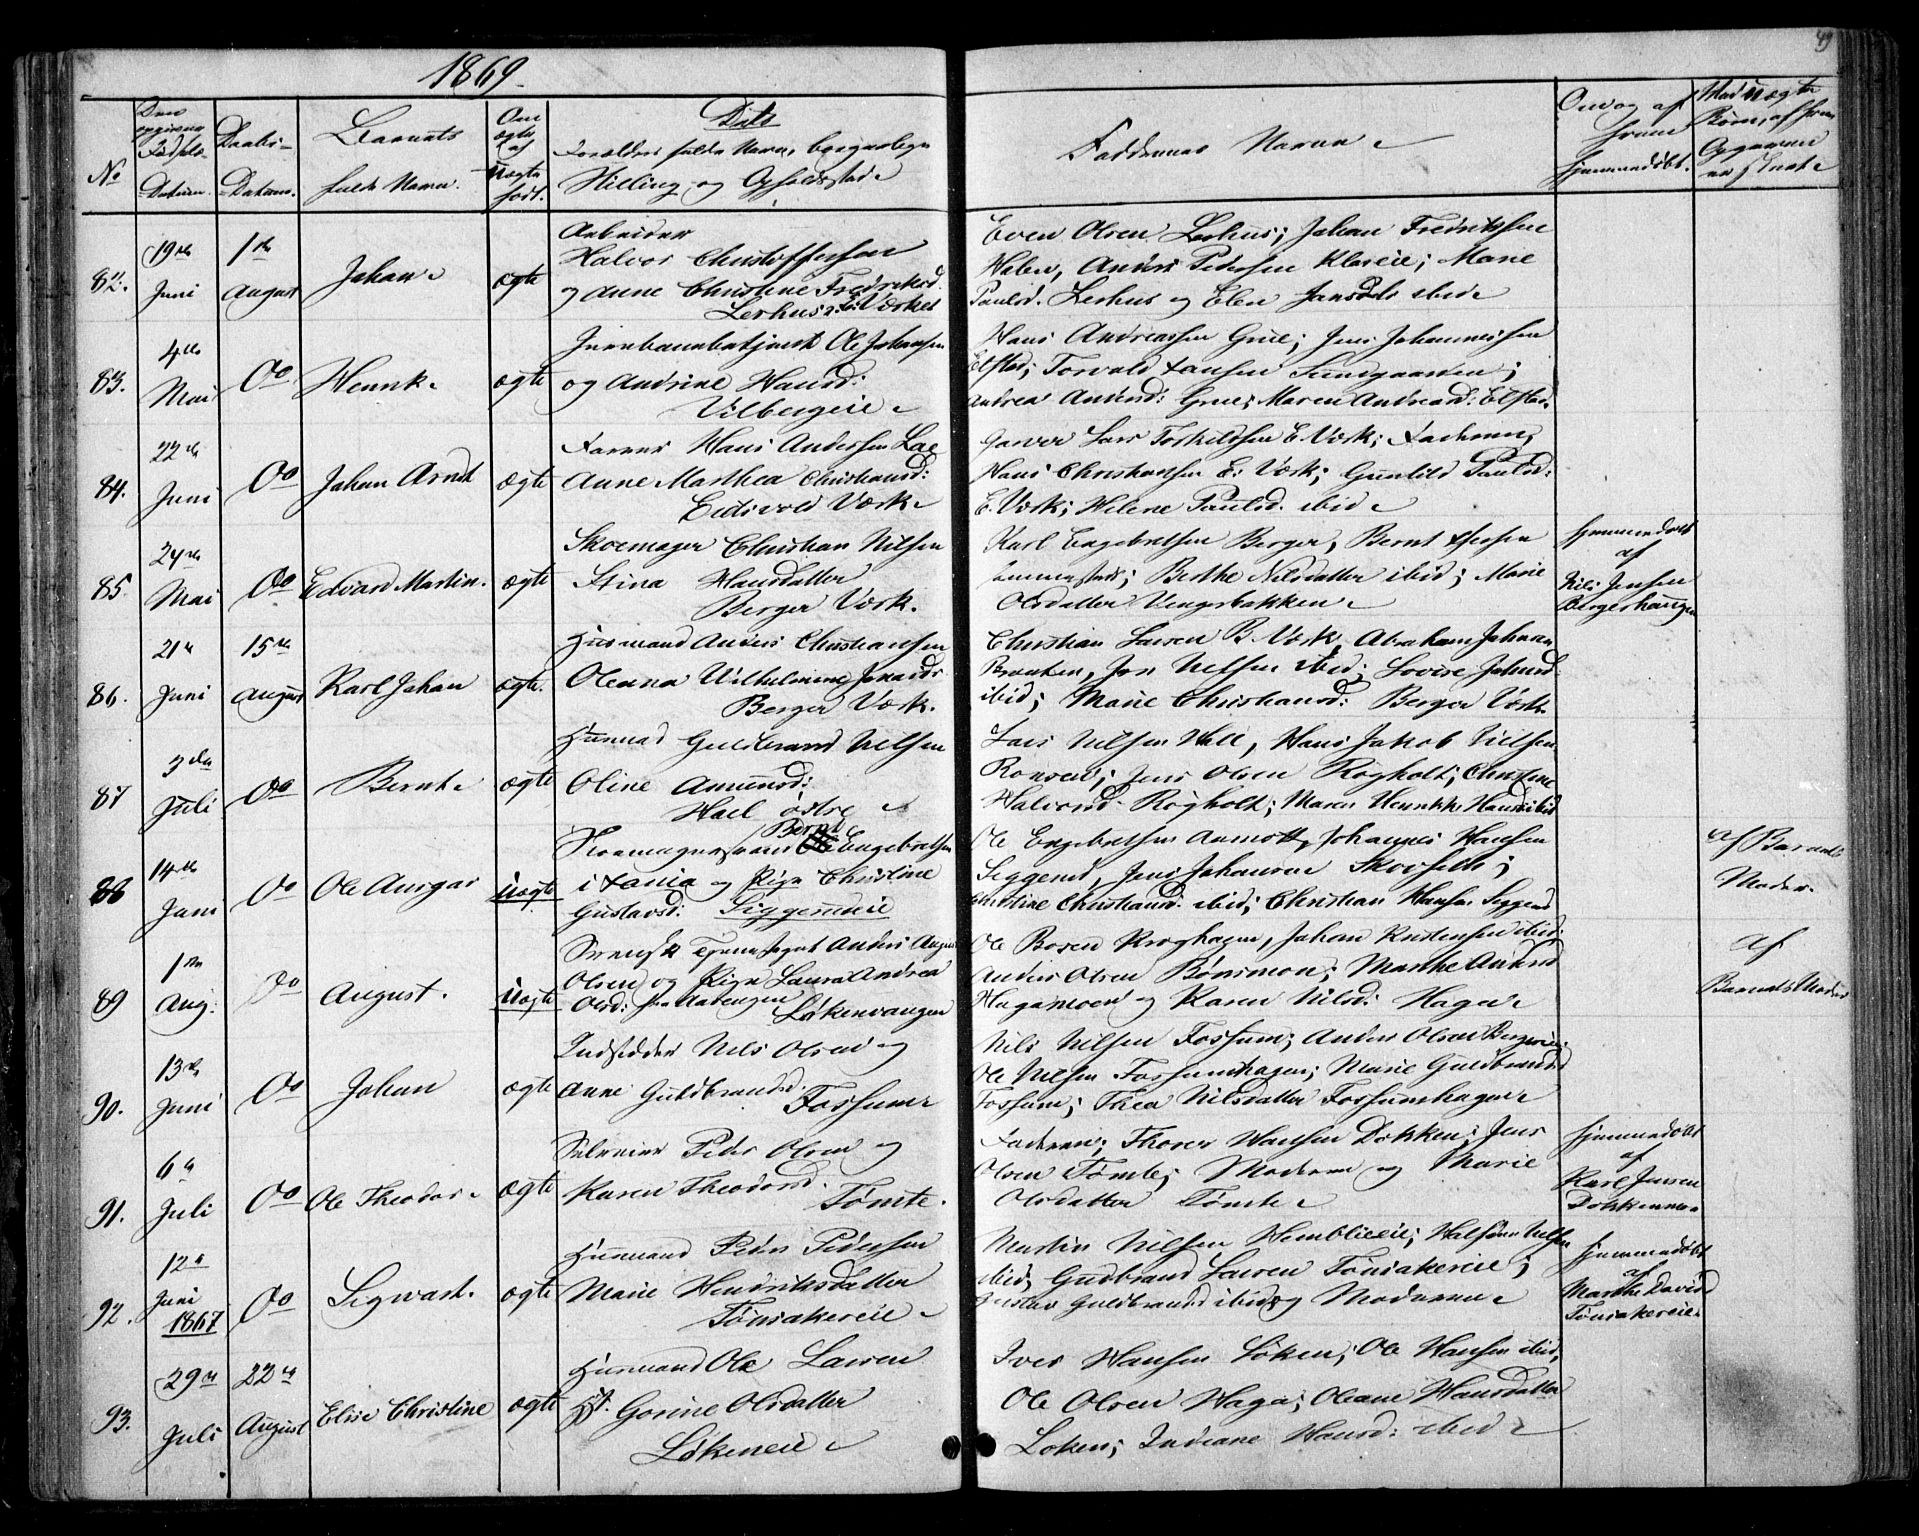 1869.
49
No
Den opgivne Fødsels-Datum.
Daabs-Datum.
Barnets fulde Navn.
Om ægte eller uægte født.
Dets
Forældres fulde Navn, borgerlige
Stilling og Opholdssted
Faddernes Navne
Om og af hvem hjemmedøbt.
Ved uægte Børn, af hvem Opgaven er skeet
82. 19de Juni
1ste August
Johan
ægte
Arbeider
Halvor Christoffersen
og Anne Christine Fredriksd.
Lerhus E. Værket
Even Olsen Lerhus; Johan Fredriksen
Holen, Anders Pedersen Klareie; Marie
Paulsd. Lerhus og Elen Jensdtr ibid
83. 4de Mai
Do
Henrik
ægte
Jernbanebetjent Ole Johansen
og Andrine Hansd:
Vilbergeie
Hans Andreassen Grue; Jens Johannessen
Elstad; Torvald Hansen Sundgaarden;
Andrea Andersd: Grue; Maren Andreasd: Elstad.
84. 22de Juni
Do
Johan Arndt
ægte
Farver Hans Andersen Lae
Anne Marthea Christiansd:
Eidsvold Værk
Garver Lars Torkildsen E. Værk; Faderen,
Hans Christiansen E. Værk; Gunhild Paulsd:
E. Værk; Helene Paulsd. ibid
85. 24de Mai
Do
Edvard Martin.
ægte
Skoemager Christian Nilsen
Stina Hansdatter
Berger Værk.
Karl Engebretsen Berger, Bernt
Berthe Nilsdatter ibid; Marie
Olsdatter Vengsbakken
hjemmedøbt
af
Nils Jensen
Bergershaugen
86. 21de Juni
15de August
Karl Johan
ægte.
Husmand Anders Christiansen
Oleana Vilhelmine Jonasdr
Berger Værk.
Christian Larsen B. Værk, Abraham Johnsen
Braaten, Jon Nilsen ibid; Lovise Johnsd:
ibid; Marie Christiansd: Berger Værk
87 3die Juli
Do
Bernt
ægte
Husmd Guldbrand Nilsen
Oline Amunsd:
Hael østre
Lars Nilsen Hael, Hans Jakob Nilsen
Ronsen; Jens Olsen Røgholt; Christine
Halvorsd. Røgholt; Maren Henrikke Hansd ibid
88 14de Juni
Do
Ole Ansgar
uægte
Bernt
Skoemagersvend Engebretsen
i Fania og Pige Christine
Gustavsd: Siggerudeie
Ole Engebretsen Aamott, Johannes Hansen
Siggerud, Jens Johansen Skovseth;
Christine Christiansd. ibid; Christian Hansen Siggerud
af Barnets
Moder.
89 1ste Aug:
Do
August.
uægte
Svensk Tjenestegut Anders August
Olsen og Pige Laura Andrea
Olsd: fra Aasengen
Løkenvangen
Ole Bosen Kroghagen, Johan Kristensen ibid:
Anders Olsen Bønsmoen; Marthe Andersd
Hagamoen og Karen Nilsd: Hagen
af
Barnets Moder
90. 13de Juni
Do
Johan
ægte
Inderster Nils Olsen og
Anne Guldbrandsd.
Fossum
Nils Nilsen Fossum; Anders Olsen Bergseie;
Ole Nilsen Fossumhagen; Marie Guldbrandsd
Fossum; Thea Nilsdatter Fossumhagen
91. 6te Juli
Do
Ole Theodor
ægte
Selveier Peder Olsen og
Karen Theodorsd.
Tømte.
Faderen; Thorer Hansen Dokken; Jens
Olsen Tømte; Moderen og Marie
Olsdatter Tømte
hjemmedøbt
af
Karl Jensen
Dokkenmo
92. 12te Juni 1867
Do
Sigvart.
ægte
Husmand Peder Pedersen
Marie Hendriksdatter
Tønsakereie
Martin Nilsen Hemblieeie; Nilsen
ibid, Gudbrand Larsen Tønsakereie;
Gustav Guldbrandsd ibid og Moderen
hjemmedøbt
af
Marthe Davidsd
Tønsakereie
93. 29de Juli
22de August
Elise Christine
ægte
Husmand Ole Larsen
og Gorine Olsdatter
Løkeneie
Iver Hansen Løken; Ole Hansen ibid,
Ole Olsen Haga; Oleane Hansdatter
Løken; Indiane Hansd: ibid